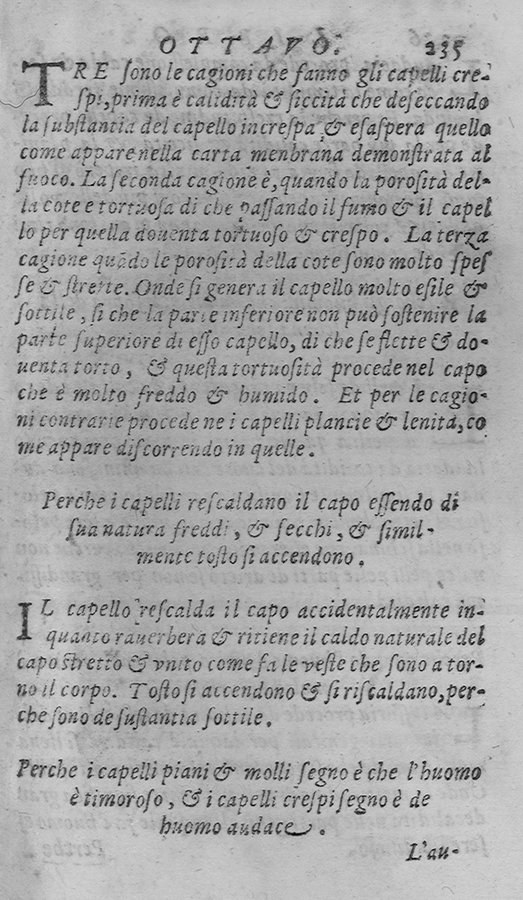 OTTAVO. 235
TRE sono le cagioni che fanno gli capelli cre-
spi, prima è calidità & siccità che deseccando
la substantia del capello increspa & esaspera quello
come appare nella carta menbrana demonstrata al
fuoco. La seconda cagione è, quando la porosità del-
la cote e tortuosa di che passando il fumo & il capel
lo per quella douenta tortuoso & crespo. La terza
cagione quãdo le porosità della cote sono molto spes
se & strette. Onde si genera il capello molto esile &
sottile, si che la parte inferiore non può sostenire la
parte superiore di esso capello, di che se flette & do-
uenta torto, & questa tortuosità procede nel capo
che è molto freddo & humido. Et per le cagio-
ni contrarie procede ne i capelli plancie & lenita, co
me appare discorrendo in quelle.
Perche i capelli rescaldano il capo essendo di
sua natura freddi, & secchi, & simil-
mente tosto si accendono.
IL capello rescalda il capo accidentalmente in-
quanto rauerbera & ritiene il caldo naturale del
capo stretto & vnito come fa le veste che sono a tor-
no il corpo. Tosto si accendono & si riscaldano, per-
che sono de sustantia sottile.
Perche i capelli piani & molli segno è che l'huomo
è timoroso, & i capelli crespi segno è de
huomo audace.
L'au-